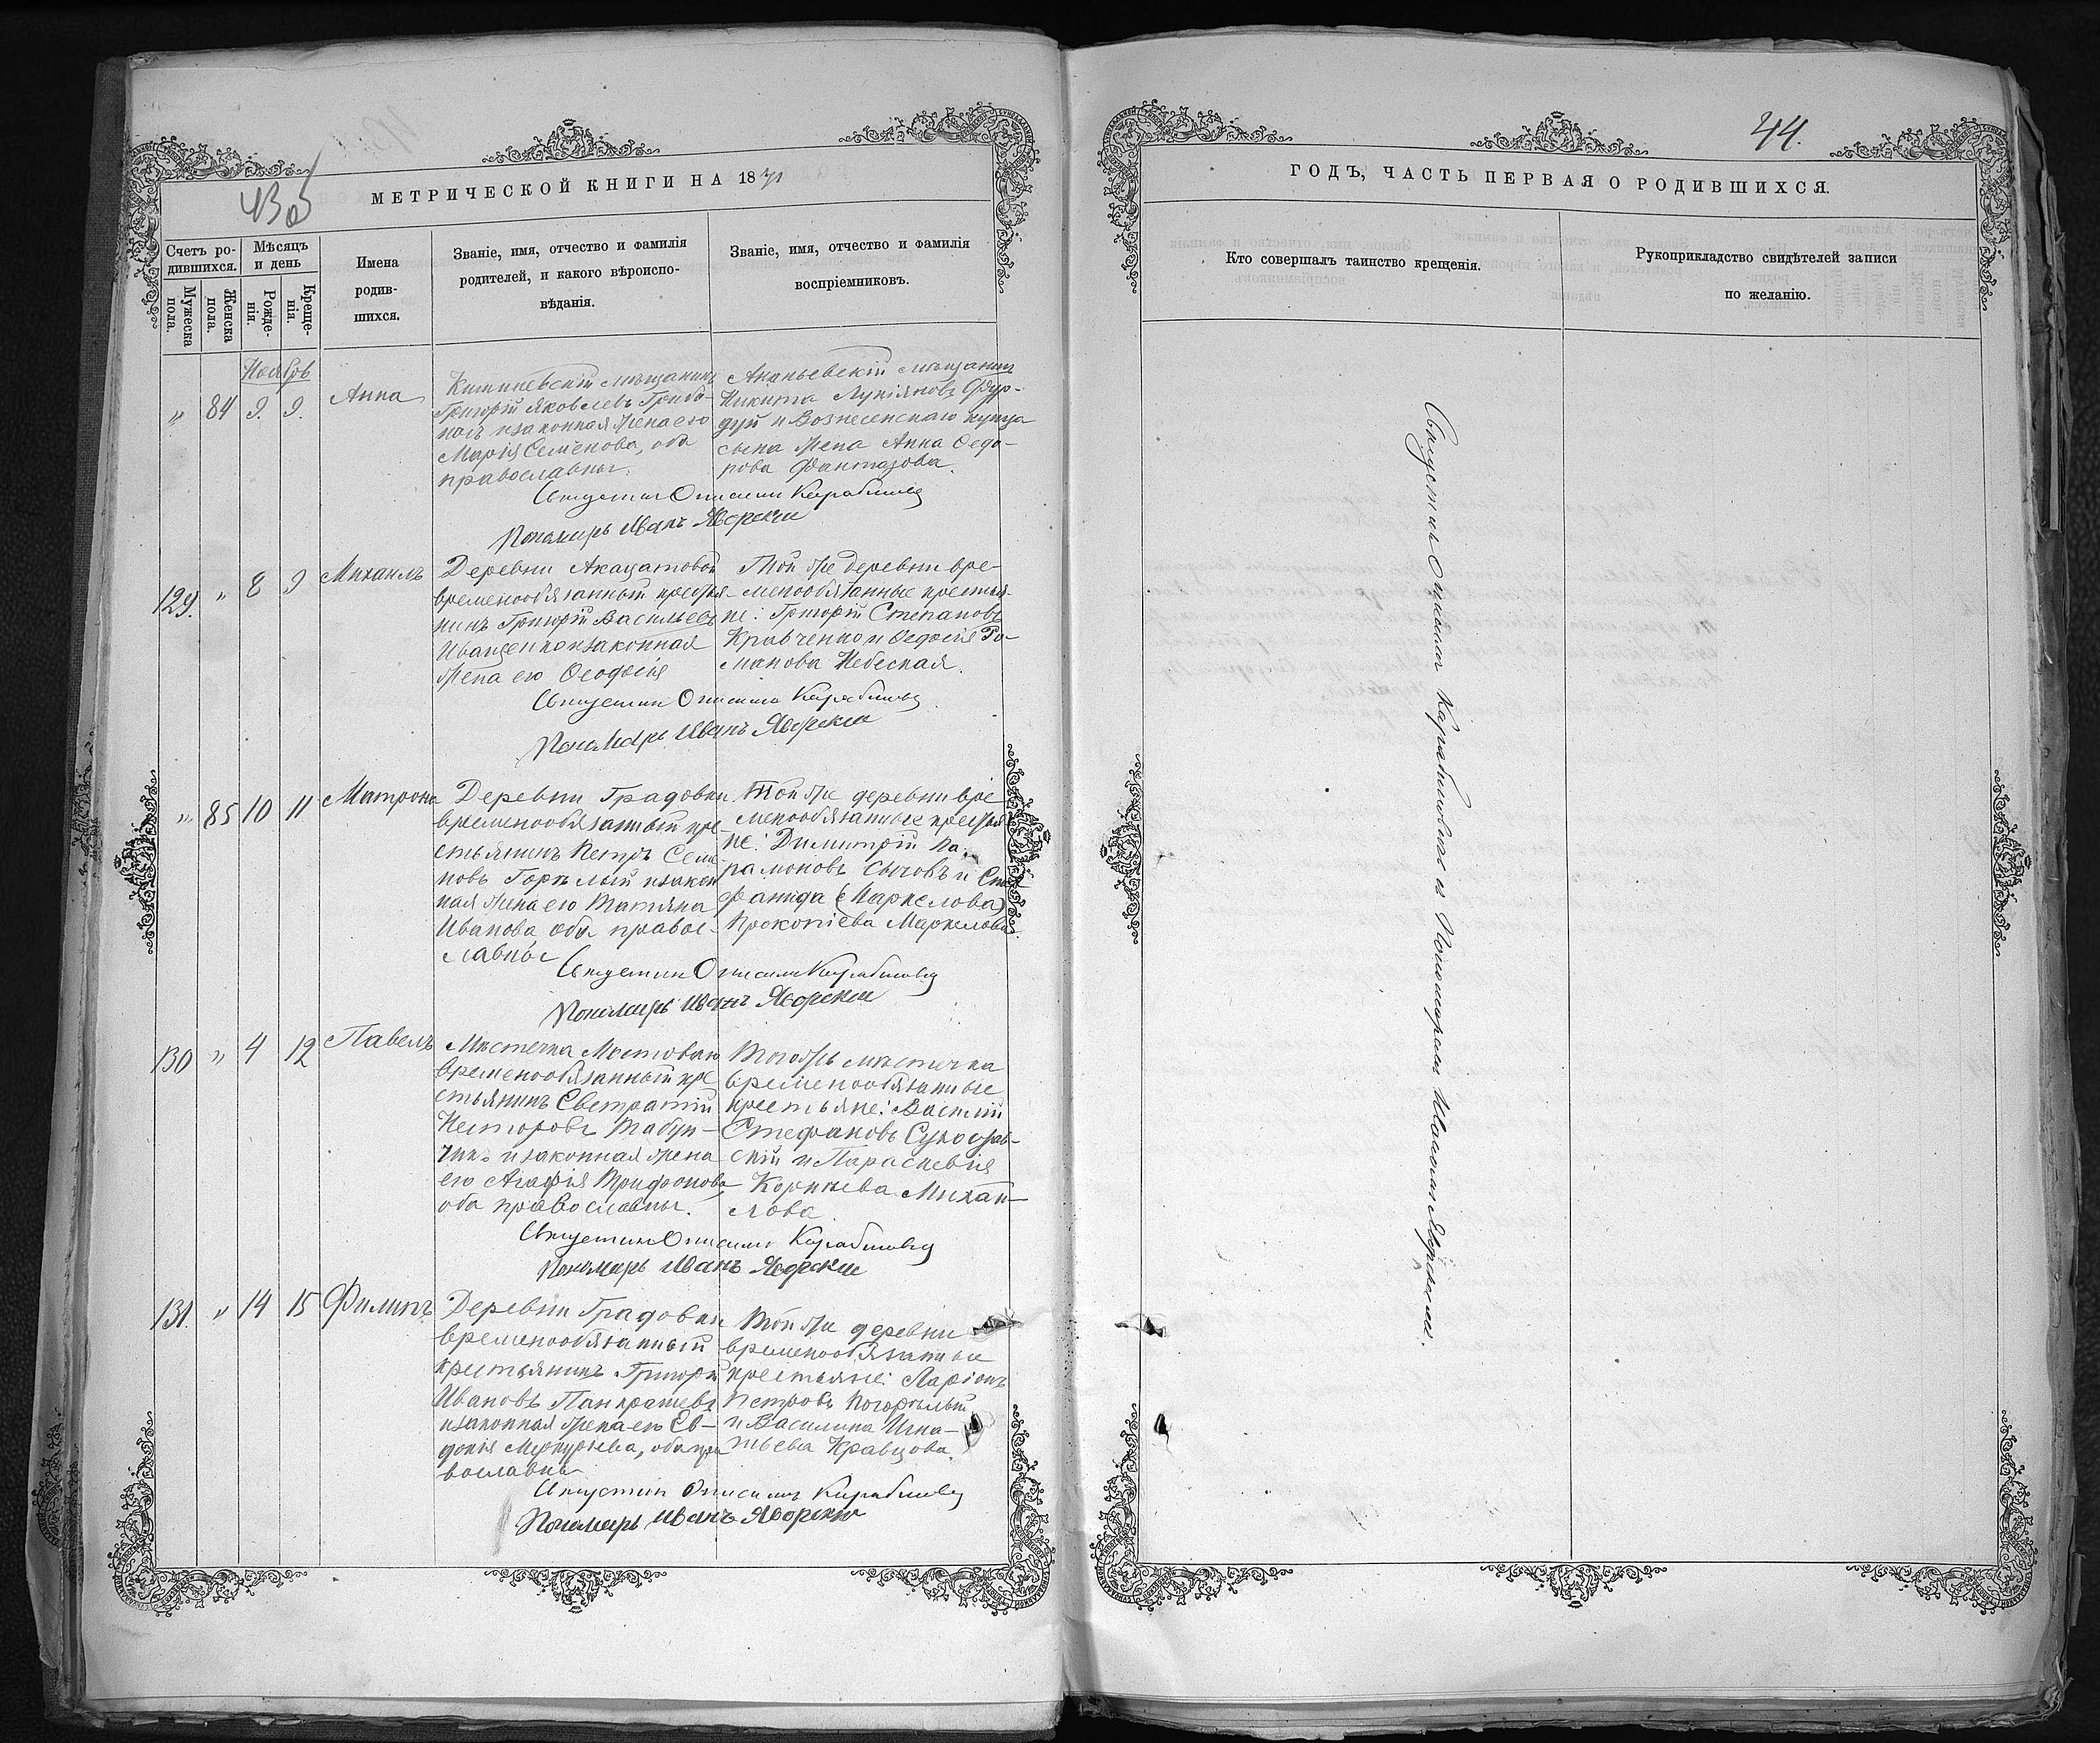 43 об
МЕТРИЧЕСКОЙ КНИГИ НА 1871
Счетъ ро-
дившихся.
Мѣсяцъ
и день
Мужеска
пола.
Женска
пола.
Рожде-
нія.
Креще-
нія.
Имена
родив-
шихся.
Званіе, имя, отчество и фамилія
родителей, и какого вѣроиспо-
вѣданія.
Званіе, имя, отчество и фамилія
воспріемниковъ.
Ноябрь
" 84 9. 9. Анна
Кишиневскій мѣщанинъ
Григорій Яковлевъ
и законная жена его
Марія Семенова, оба
православны.
Ананьевскій мѣщанин
Никита Лукіяновъ Фур-
дуй и Вознесенскаго купца
сына жена Анна Ѳедо-
рова Фантазова.
Пономарь Иванъ Яворскій
129. " 8 9 Михаилъ
Деревни Акацатовой
временнообязанный крестья-
нинъ Григорій Васильевъ
Иващенко и законная
жена его Ѳеодосія
Той же деревни вре-
менообязанные крестья-
не: Григорій Степановъ
Кравченко и Ѳедосія Ро-
манова Небесная.
Пономарь Иванъ Яворскій
" 85 10 11 Матрона
Деревни Градовки
временообязанный кре-
стьянинъ Петръ Семе
новъ Горѣлый и закон
ная жена его Татіяна
Иванова, оба право-
славны
Той же деревни вре
менообязанные крестья
не: Димитрій Па-
рамоновъ Сычовъ и Сте
фанида (Маркелова)
Прокопіева Маркелова.
Пономарь Иванъ Яворскій
130 " 4 12 Павелъ
Мѣстечка Мостоваго
временообязанный кре
стьянинъ Евстратій
Несторовъ Табун-
чикъ и законная жена
его Агафія Трифонова
оба православны.
Тогожъ мѣстечка
временообязанные
крестьяне: Василій
Стефановъ
скій и Параскевія
Корнѣева Михай-
лова.
Пономарь Иванъ Яворскій
131. " 14 15 Филипъ
Деревни Градовки
временообязанный
крестьянинъ Григорій
Ивановъ Панкратевъ
и законная жена его Ев-
докія Меркурьева, оба пра
вославны
Той же деревни
временообязанные
крестьяне: Ларіонъ
Петровъ Погорѣлый
и Василина Игна-
тьева Кравцова.
Пономарь Иванъ Яворскій
44.
ГОДЪ, ЧАСТЬ ПЕРВАЯ О РОДИВШИХСЯ.
Кто совершалъ таинство крещенія.
Рукоприкладство свидѣтелей записи
по желанію.
съ Пономаремъ Иваномъ Яворскимъ.